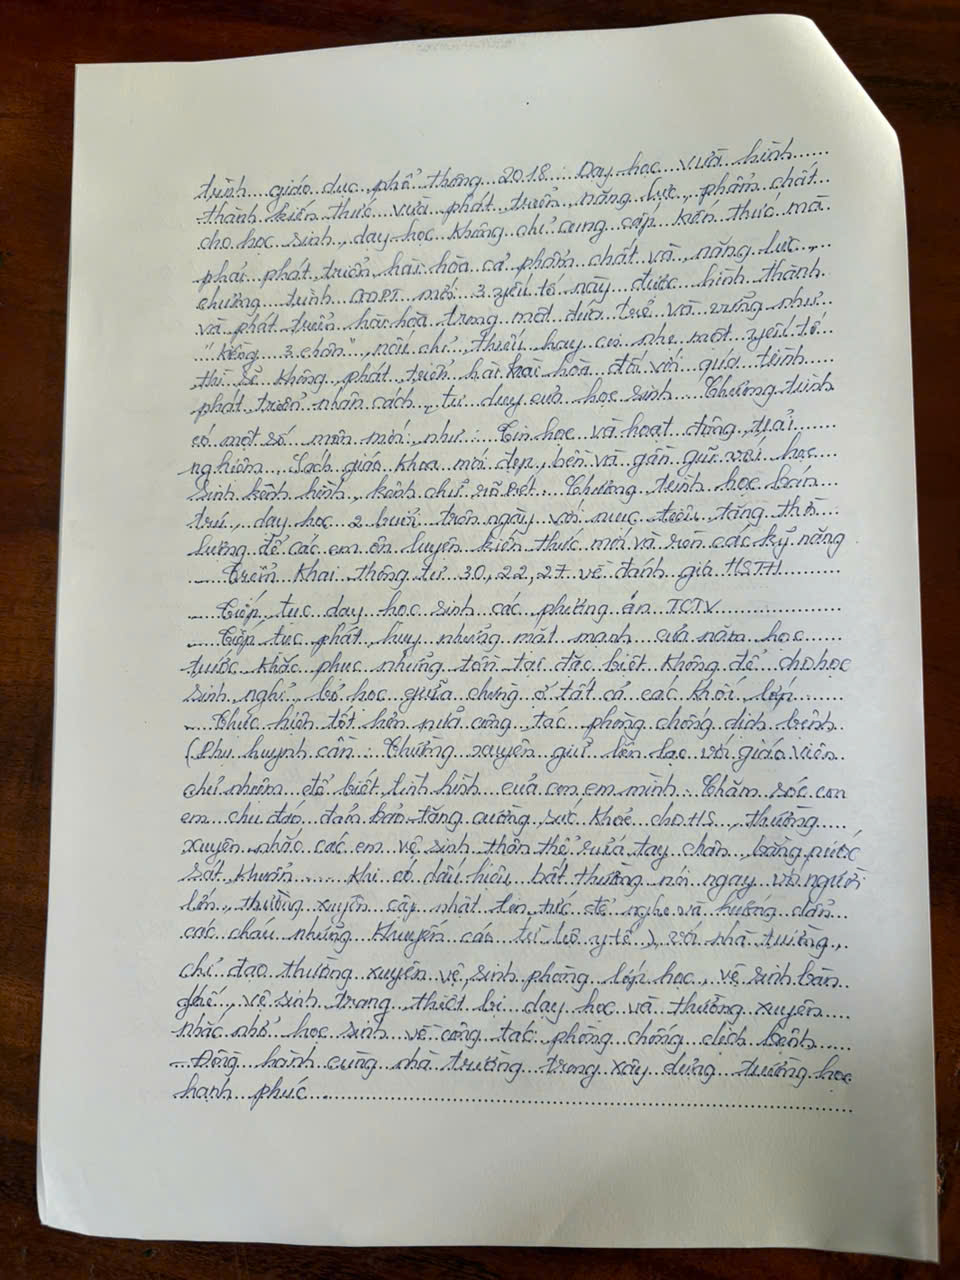 trình giáo dục phổ thông 2018: Dạy học vừa hình
thành kiến thức vừa phát triển năng lực, phẩm chất
cho học sinh, dạy học không chỉ cung cấp kiến thức mà
phải phát triển hài hòa cả phẩm chất và năng lực,
chương trình GDPT mới 3 yếu tố này được hình thành
và phát triển hài hòa trong một đứa trẻ và vững như
"kiềng 3 chân", nếu chỉ thiếu hay coi nhẹ một yếu tố
thì sẽ không phát triển hài hòa đối với quá trình
phát triển nhân cách, tư duy của học sinh. Chương trình
có một số môn mới như: Tin học và hoạt động trải
nghiệm. Sách giáo khoa mới đẹp, bền và gần gũi với học
sinh kênh hình, kênh chữ rõ nét. Chương trình học bán
trú, dạy học 2 buổi trên ngày với mục tiêu tăng thời
lượng để các em ôn luyện kiến thức mới và rèn các kỹ năng
Triển khai thông tư 30, 22, 27 về đánh giá HSTH
Tiếp tục dạy học sinh các phương án TCTV
Tiếp tục phát huy những mặt mạnh của năm học
trước khắc phục những tồn tại đặc biệt không để cho học
sinh nghỉ, bỏ học giữa chừng ở tất cả các khối lớp
- Thực hiện tốt hơn nữa công tác phòng chống dịch bệnh
(Phụ huynh cần: Thường xuyên giữ liên lạc với giáo viên
chủ nhiệm để biết tình hình của con em mình. Chăm sóc con
em chu đáo đảm bảo tăng cường sức khỏe cho HS, thường
xuyên nhắc các em vệ sinh thân thể rửa tay chân bằng nước
sát khuẩn.... khi có dấu hiệu bất thường nói ngay với người
lớn, thường xuyên cập nhật tin tức để nghe và hướng dẫn
các cháu những khuyến cáo từ bộ y tế), với nhà trường,
chỉ đạo thường xuyên vệ sinh phòng lớp học, vệ sinh bàn
ghế, vệ sinh trang thiết bị dạy học và thường xuyên
nhắc nhở học sinh về công tác phòng chống dịch bệnh
- Đồng hành cùng nhà trường trong xây dựng trường học
hạnh phúc